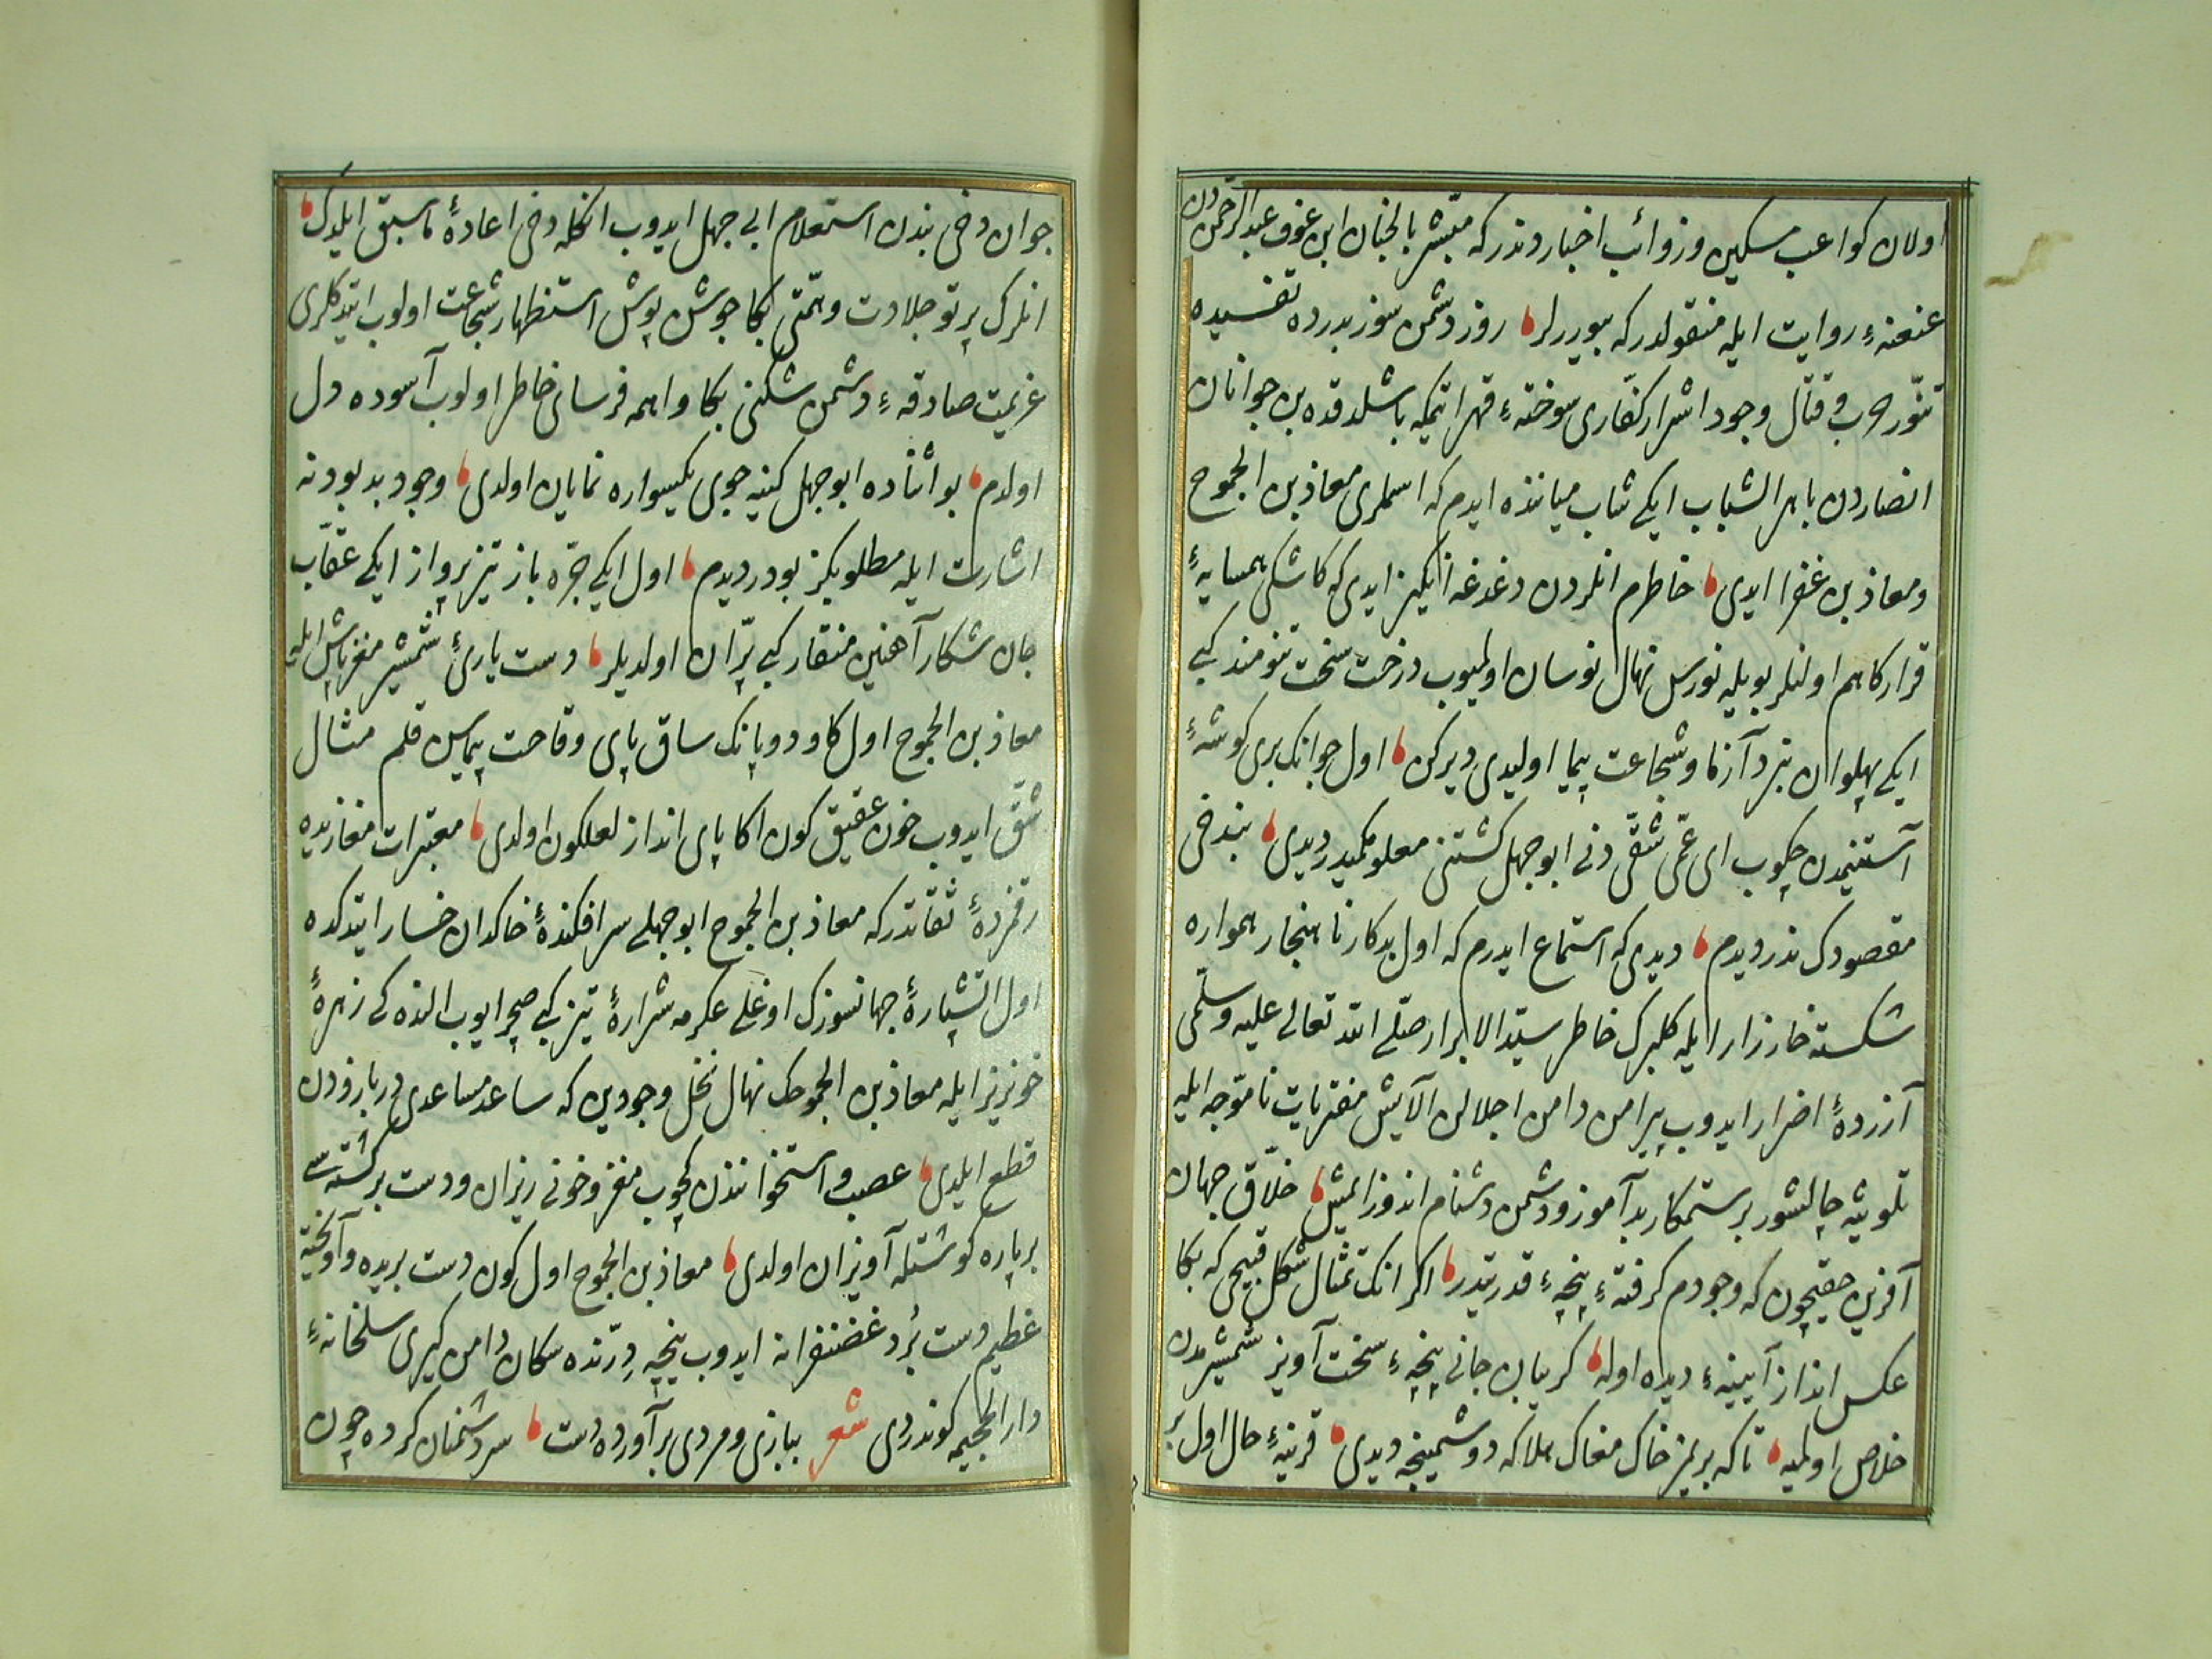 اولان کواعب مسکین وزوائب اخباردندرکه مبشر بالجنان ابن عوف عبدالرحمن دن
عنعنهٔ روایت ایله منقولدرکه بیوررلر روز دشمن سوز بدرده تفسیده
تنور حرب و قتال وجود اشرار کفاری سوختهٔ قهر اتمکه باشلدقده بن جوانان
انصاردن باهر الشباب ایکی شاب میاننده ایدم که اسملری معاذ بن الجموح
ومعاذ بن عفرا ایدی خاطرم انلردن دغدغه انکیز ایدی که کاشکی همسایهٔ
قرارکاهم اولنلر بویله نورس نهال نوسان اولمیوب درخت سخت تنومند کبی
ایکی پهلوان نبرد آزما وشجاعت پیما اولیدی دیرکن اول جوانک بری کوشهٔ
آستینمدن چکوب ای عمی شقی دنی ابوجهل کشتنی معلومکمیدر دیدی بندخی
مقصودک ندر دیدم دیدی که استماع ایدرم که اول بدکار ناهنجار همواره
شکسته خارزار ایله کلبرک خاطر سید الابرار صلی الله تعالی علیه وسلمی
آزردهٔ اضرار ایدوب پیرامن دامن اجلالن آلایش مفتریات ناموجه ایله
تلویثه چالشور بر ستمکار بدآموز ودشمن دشنام اندوز ایمش خلاق جهان
آفرین حقیچون که وجودم کرفتهٔ پنجهٔ قدرتیدر اکر انک تمثال شکل قبیحی که بکا
عکس انداز آیینهٔ دیده اوله کریبان جانی پنجهٔ سخت آویز شمشیرمدن
خلاص اولمیه تاکه بریمز خاک مغاک هلاکه دوشمینجه دیدی قرینهٔ حال اول بر
جوان دخی بندن استعلام ابی جهل ایدوب انکله دخی اعادهٔ ماسبق ایلدک
انلرک پرتو جلادت وهمتی بکا جوشن پوش استظهار شجاعت اولوب ایتدکلری
عزیمت صادقهٔ دشمن شکنی بکا واهمه فرسای خاطر اولوب آسوده دل
اولدم بو اثناده ابوجهل کینه جوی یکسواره نمایان اولدی وجود بدبودنه
اشارت ایله مطلوبکز بودر دیدم اول ایکی جره باز تیز پرواز ایکی عقاب
جان شکار آهنین منقار کبی پران اولدیلر دست یاریٔ شمشیر مغز پاش ایله
معاذ بن الجموح اول کاو دوپانک ساق پای وقاحت پیماسین قلم مثال
شق ایدوب خون عقیق کون اکا پای انداز لعلکون اولدی معتبرات مغازیده
رقمزدهٔ ثقاتدرکه معاذ بن الجموح ابوجهلی سرافکندهٔ خاکدان خسار ایتدکده
اول آتشپارهٔ جهانسوزک اوغلی عکرمه شرارهٔ تیز کبی صچرایوب النده کی زهرهٔ
خونریز ایله معاذ بن الجموحک نهال نخل وجودین که ساعد مساعدی در بازودن
قطع ایلدی عصب و استخوانندن کچوب مغز وخونی ریزان ودست برکشته سی
برپاره کوشتله آویزان اولدی معاذ بن الجموح اول کون دست بریده وآویخته
عظیم دست برد غضنفرانه ایدوب پنجه درنده سکان دامن کیری سلخانهٔ
دار الجحیمه کوندردی شعر ببازی ومردی برآورده دست سر دشمنان کرده چون